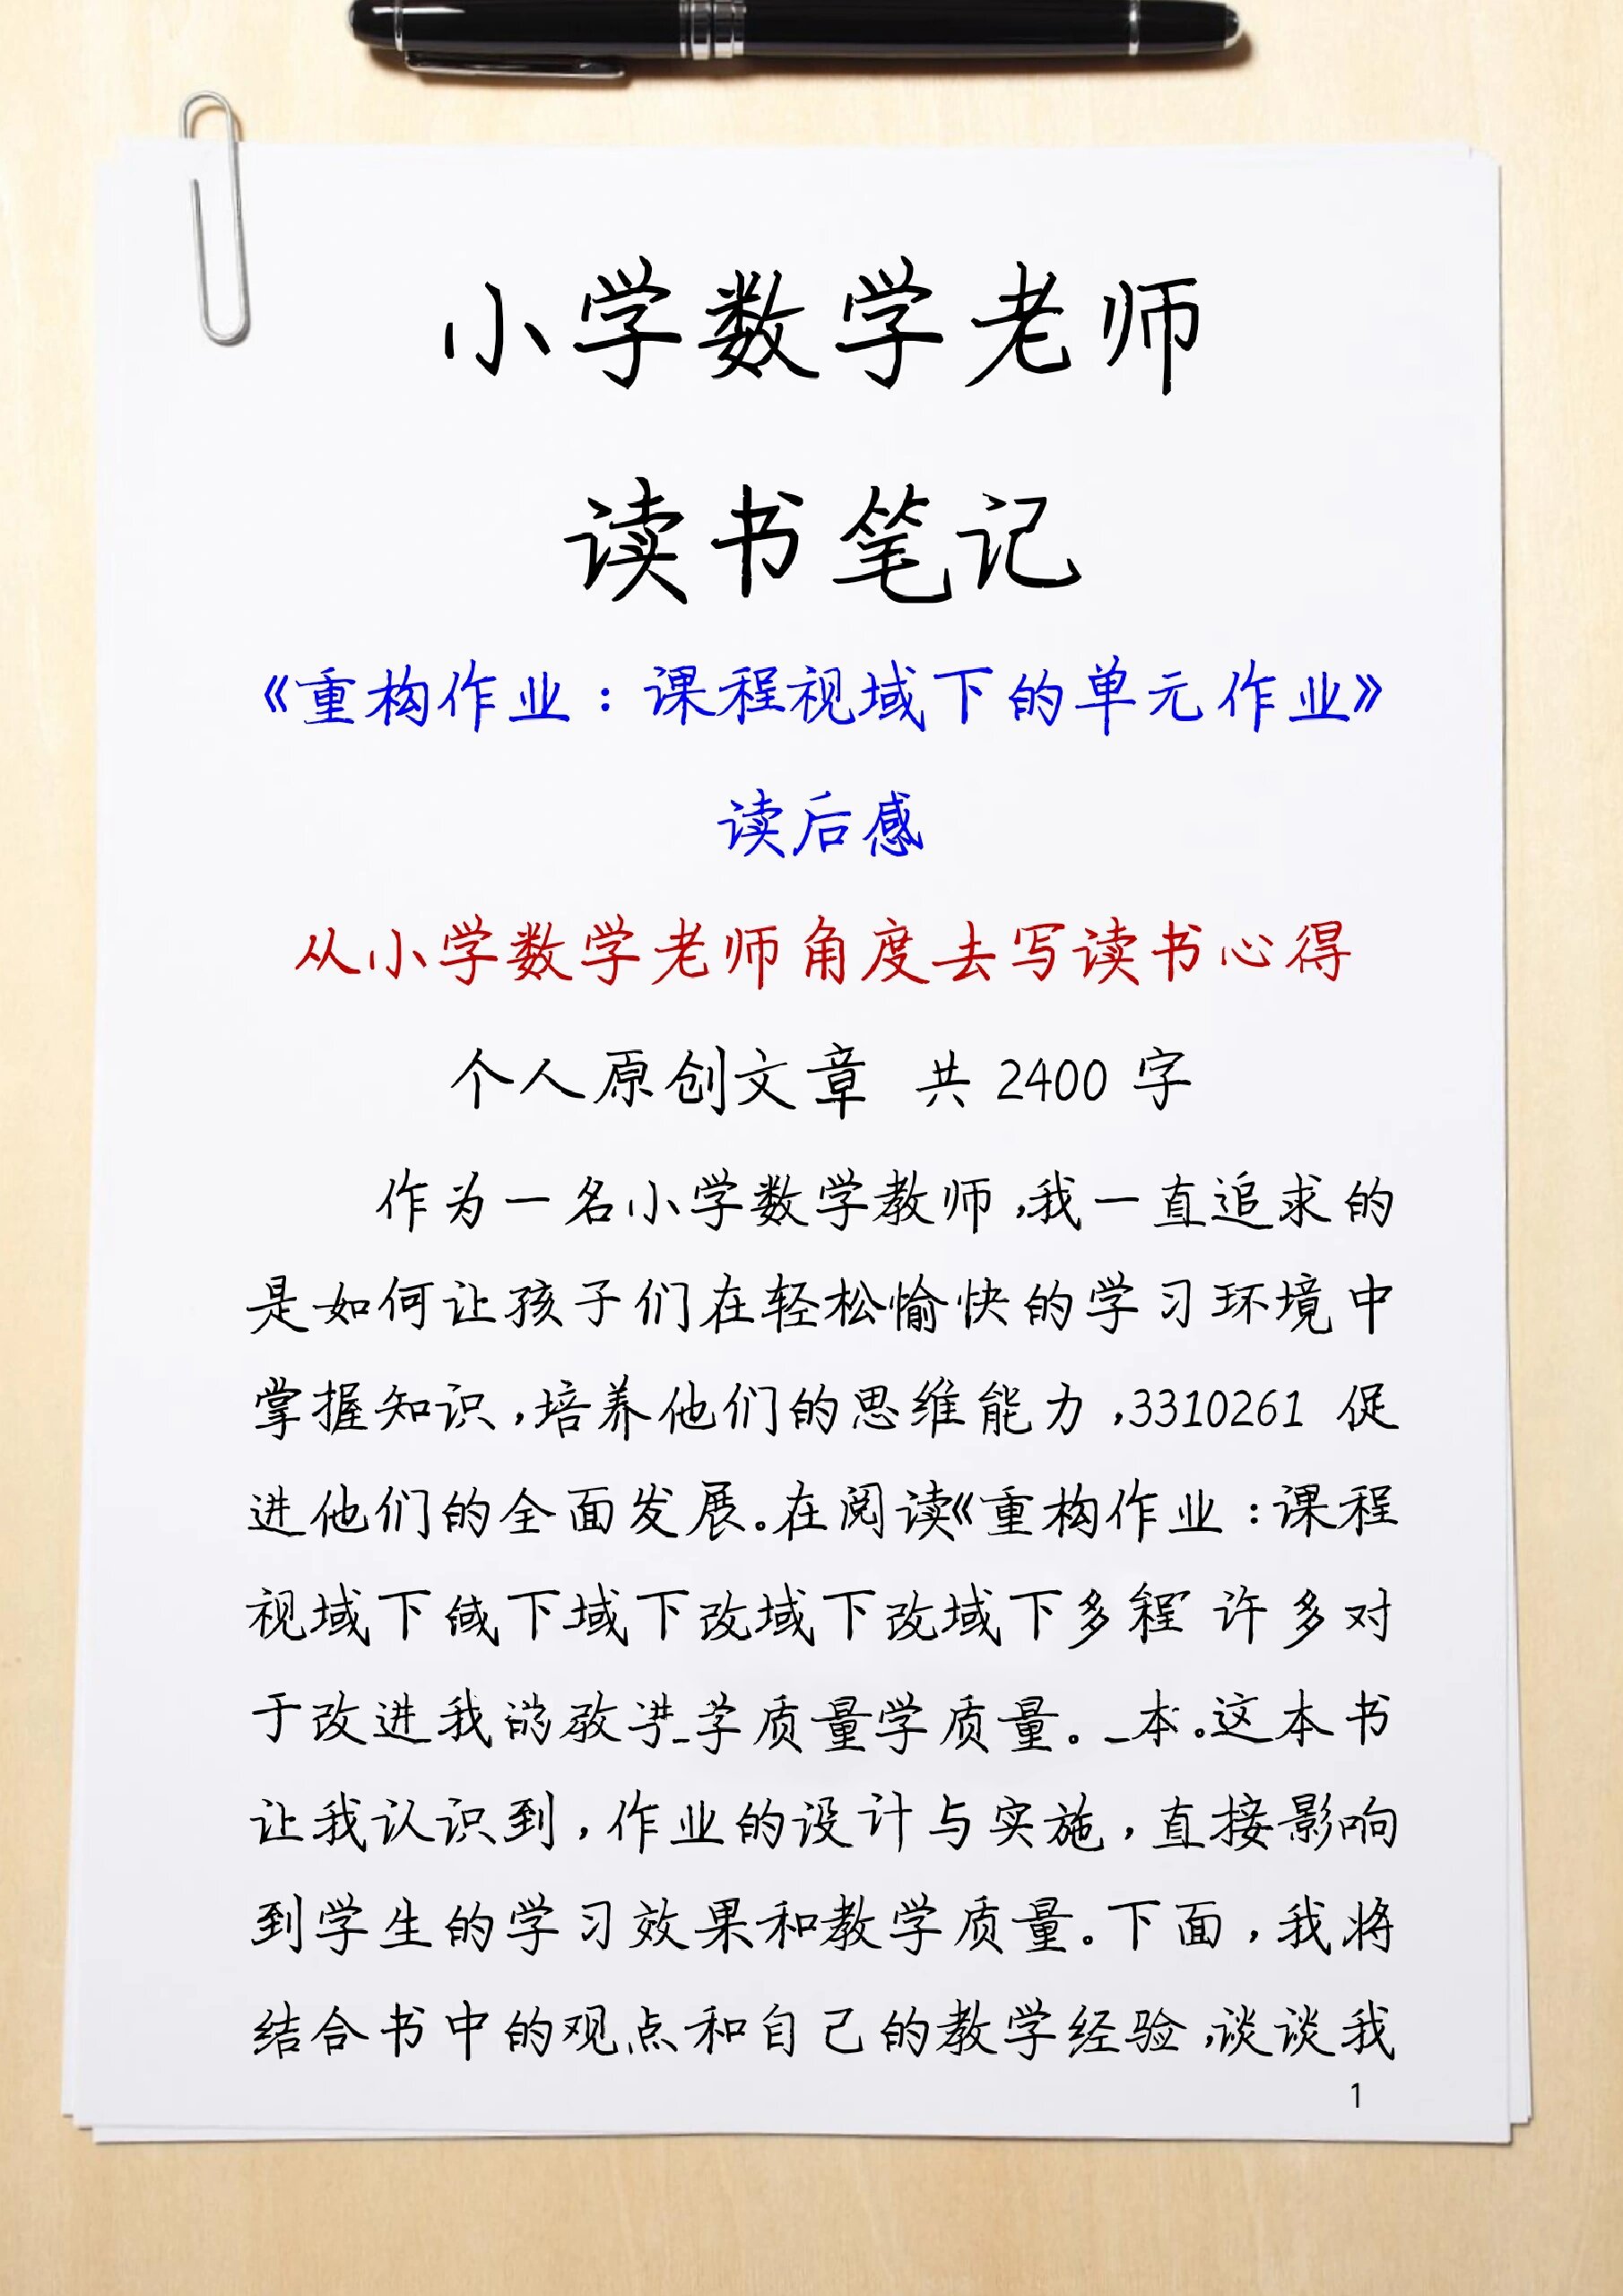 小学数学老师
读书笔记
《重构作业：课程视域下的单元作业》
读后感
从小学数学老师角度去写读书心得
个人原创文章 共2400字
作为一名小学数学教师，我一直追求的
是如何让孩子们在轻松愉快的学习环境中
掌握知识，培养他们的思维能力，3310261 促
进他们的全面发展。在阅读《重构作业：课程
视域下域下域下改域下改域下多程 许多对
于改进我的教学质量学质量。本。这本书
让我认识到，作业的设计与实施，直接影响
到学生的学习效果和教学质量。下面，我将
结合书中的观点和自己的教学经验，谈谈我
1